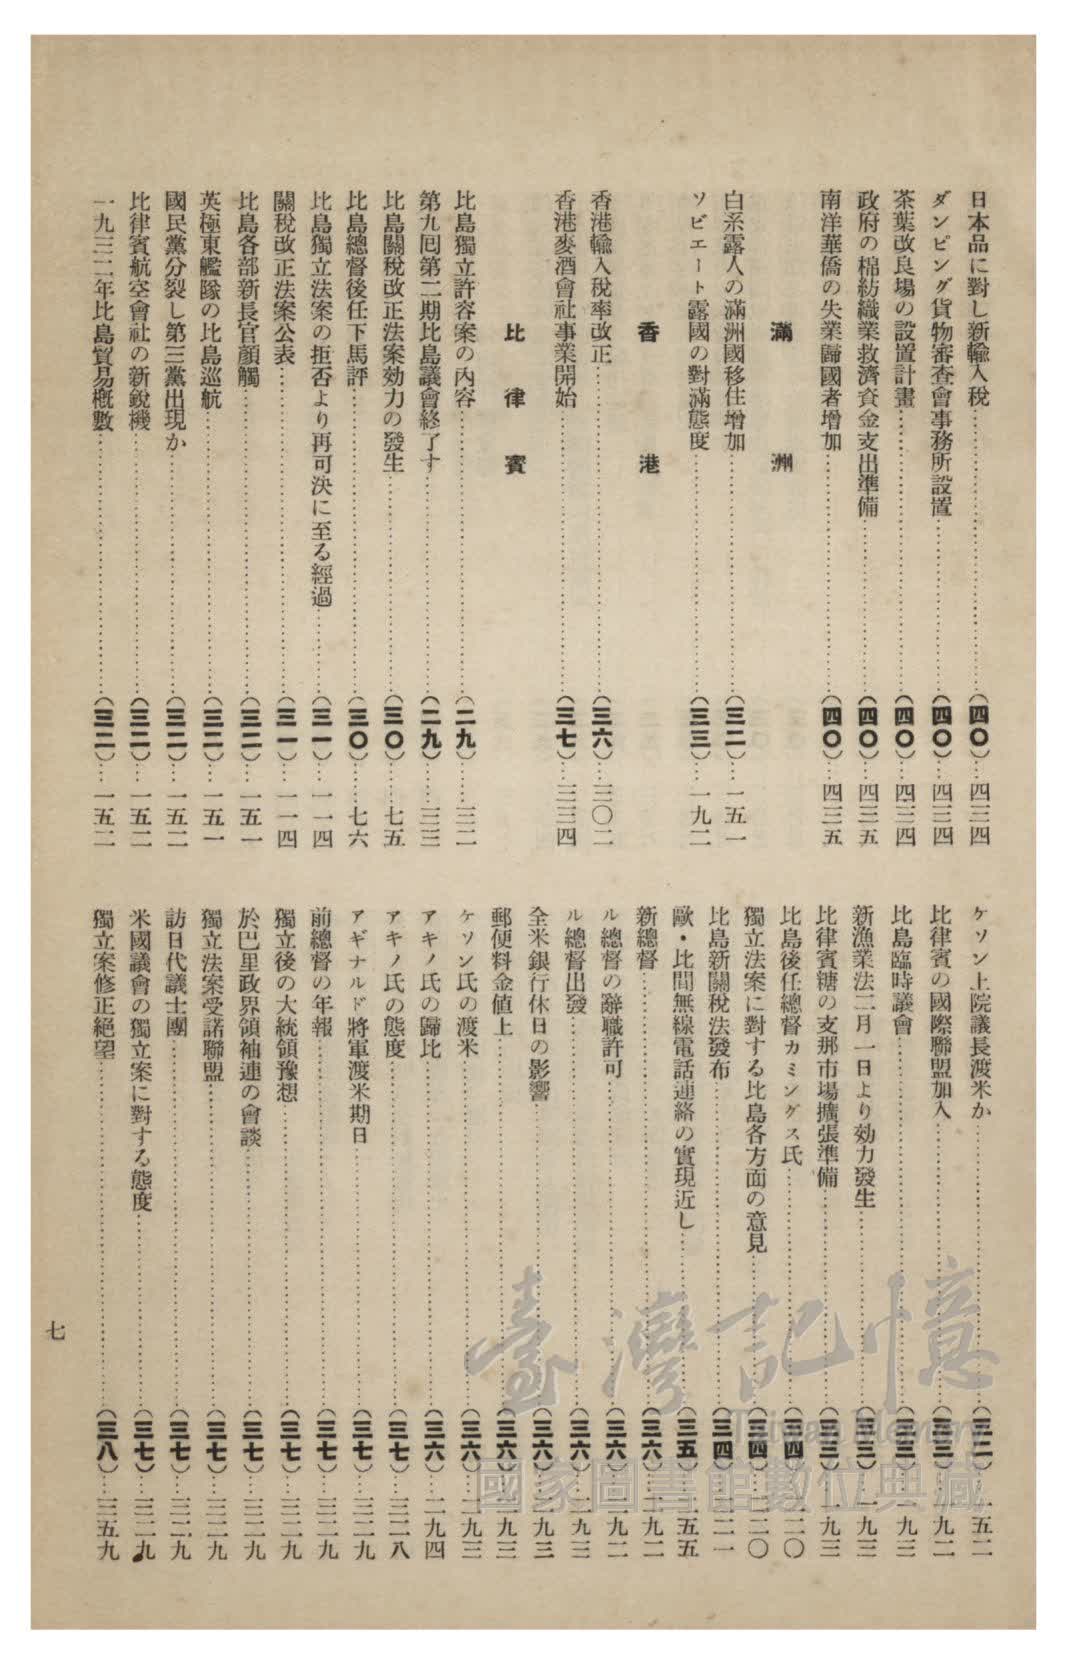 日本品に對し新輸入税……(四〇)…四三四
ダンピング貨物審査會事務所設置……(四〇)…四三四
茶葉改良場の設置計畫……(四〇)…四三四
政府の棉紡織業救濟資金支出準備……(四〇)…四三五
南洋華僑の失業歸國者增加……(四〇)…四三五
滿洲
白系露人の滿洲國移住增加……(三二)…一五一
ソビエート露國の對滿態度……(三三)…一九二
香港
香港輸入税率改正……(三六)…三〇二
香港麥酒會社事業開始……(三七)…三三四
比律賓
比島獨立許容案の內容……(二九)…三二
第九回第二期比島議會終了す……(二九)…三三
比島關税改正法案効力の發生……(三〇)…七五
比島總督後任下馬評……(三〇)…七六
比島獨立法案の拒否より再可決に至る經過……(三一)…一一四
關税改正法案公表……(三一)…一一四
比島各部新長官顏觸……(三二)…一五一
英極東艦隊の比島巡航……(三二)…一五一
國民黨分裂し第三黨出現か……(三二)…一五二
比律賓航空會社の新銳機……(三二)…一五二
一九三二年比島貿易槪數……(三二)…一五二
ケソン上院議長渡米か……(三二)…一五二
比律賓の國際聯盟加入……(三三)…一九二
比島臨時議會……(三三)…一九三
新漁業法二月一日より効力發生……(三三)…一九三
比律賓糖の支那市場擴張準備……(三三)…一九三
比島後任總督カミングス氏……(三四)…二二〇
獨立法案に對する比島各方面の意見……(三四)…二二〇
比島新關税法發布……(三四)…二二一
歐・比間無線電話連絡の實現近し……(三五)…二五五
新總督……(三六)…二九二
ル總督の辭職許可……(三六)…二九二
ル總督出發……(三六)…二九三
全米銀行休日の影響……(三六)…二九三
郵便料金値上……(三六)…二九三
ケソン氏の渡米……(三六)…二九三
アキノ氏の歸比……(三六)…二九四
アキノ氏の態度……(三七)…三二八
アギナルド將軍渡米期日……(三七)…三二九
前總督の年報……(三七)…三二九
獨立後の大統領豫想……(三七)…三二九
於巴里政界領袖連の會談……(三七)…三二九
獨立法案受諾聯盟……(三七)…三二九
訪日代議士團……(三七)…三二九
米國議會の獨立案に對する態度……(三七)…三二九
獨立案修正絕望……(三八)…三五九
七
臺灣記憶
Taiwan Memory
國家圖書館數位典藏